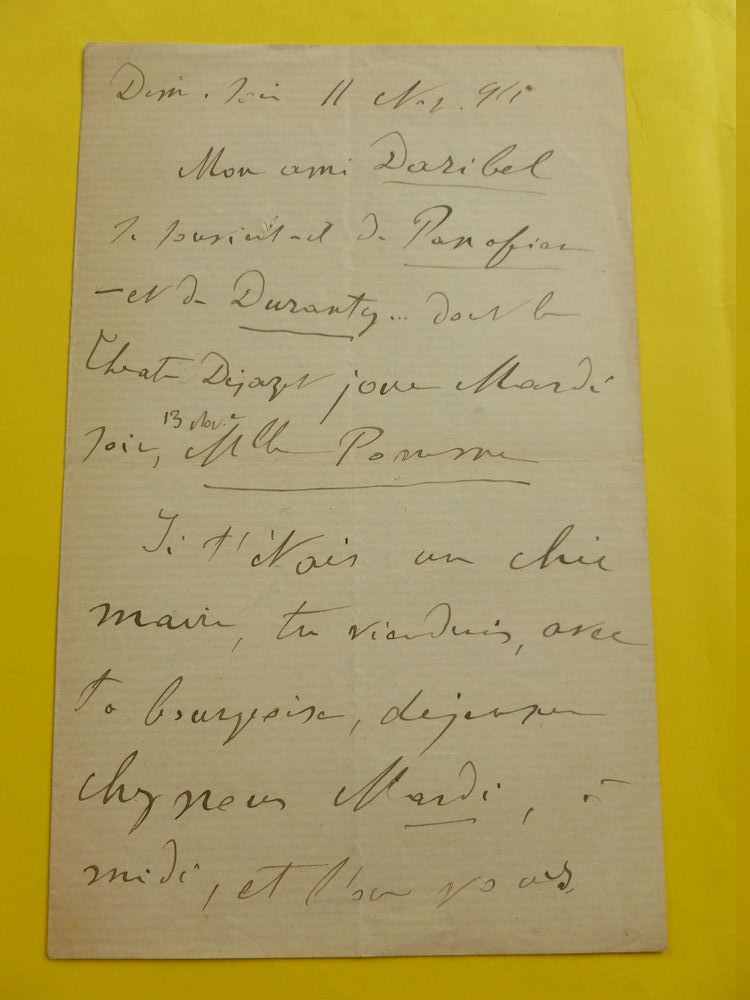 Dim. soir 11 Nov. 94
Mon ami Daribel
te souvient-il de
et de Duranty... dont le
Theatre Déjazet joue Mardi
soir, 13 Nov.e Mlle Pomme
Si t'étais un chic
maire, tu viendrais, avec
ta bourgeoise, dejeuner
chez nous Mardi, à
midi, et l'on vous